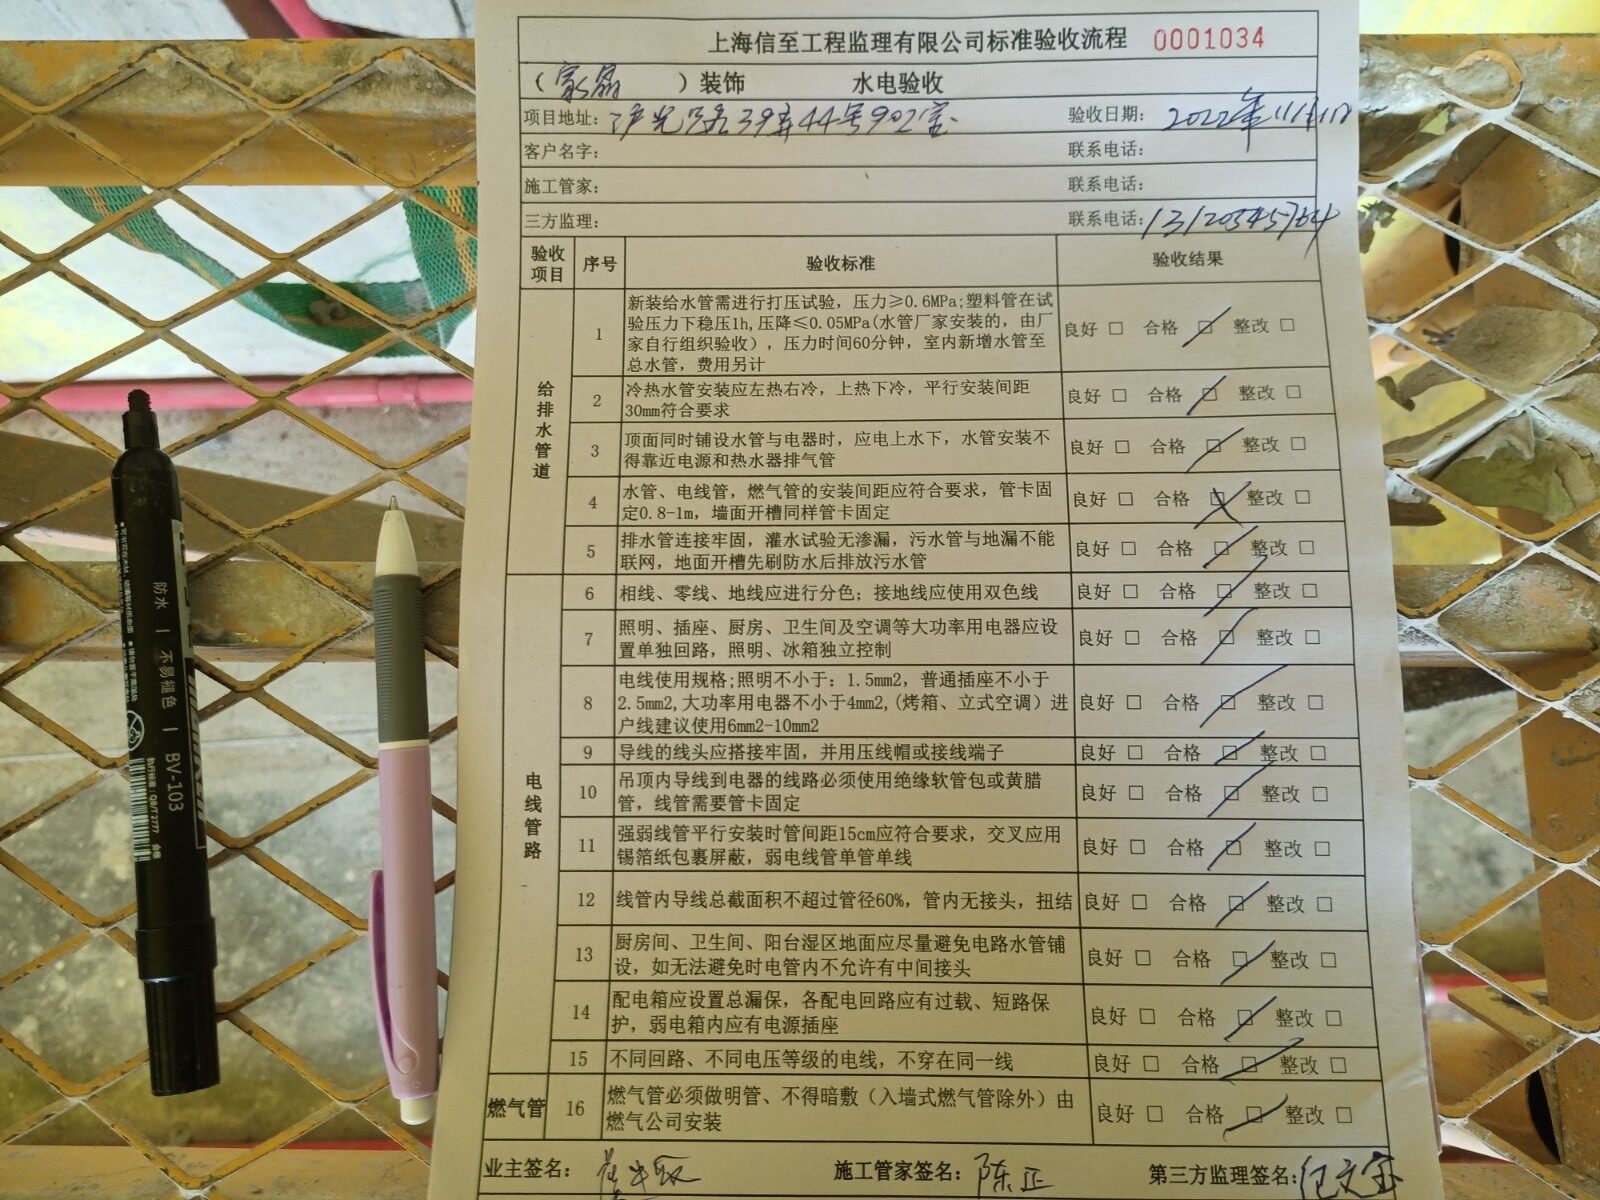 上海信至工程监理有限公司标准验收流程 0001034
( )装饰 水电验收
项目地址: 沪光路39弄44号902室 验收日期: 2022年11月11日
客户名字: 联系电话:
施工管家: 联系电话:
三方监理: 联系电话:
验收项目 序号 验收标准 验收结果
给排水管道
1 新装给水管需进行打压试验，压力≥0.6MPa;塑料管在试
验压力下稳压1h,压降≤0.05MPa(水管厂家安装的，由厂
家自行组织验收)，压力时间60分钟，室内新增水管至
总水管，费用另计
良好 □ 合格 □ 整改 □
2 冷热水管安装应左热右冷，上热下冷，平行安装间距
30mm符合要求
良好 □ 合格 □ 整改 □
3 顶面同时铺设水管与电器时，应电上水下，水管安装不
得靠近电源和热水器排气管
良好 □ 合格 □ 整改 □
4 水管、电线管，燃气管的安装间距应符合要求，管卡固
定0.8-1m，墙面开槽同样管卡固定
良好 □ 合格 □ 整改 □
5 排水管连接牢固，灌水试验无渗漏，污水管与地漏不能
联网，地面开槽先刷防水后排放污水管
良好 □ 合格 □ 整改 □
电线管路
6 相线、零线、地线应进行分色；接地线应使用双色线
良好 □ 合格 □ 整改 □
7 照明、插座、厨房、卫生间及空调等大功率用电器应设
置单独回路，照明、冰箱独立控制
良好 □ 合格 □ 整改 □
8 电线使用规格;照明不小于：1.5mm2，普通插座不小于
2.5mm2,大功率用电器不小于4mm2,(烤箱、立式空调）进
户线建议使用6mm2-10mm2
良好 □ 合格 □ 整改 □
9 导线的线头应搭接牢固，并用压线帽或接线端子
良好 □ 合格 □ 整改 □
10 吊顶内导线到电器的线路必须使用绝缘软管包或黄腊
管，线管需要管卡固定
良好 □ 合格 □ 整改 □
11 强弱线管平行安装时管间距15cm应符合要求，交叉应用
锡箔纸包裹屏蔽，弱电线管单管单线
良好 □ 合格 □ 整改 □
12 线管内导线总截面积不超过管径60%，管内无接头，扭结
良好 □ 合格 □ 整改 □
13 厨房间、卫生间、阳台湿区地面应尽量避免电路水管铺
设，如无法避免时电管内不允许有中间接头
良好 □ 合格 □ 整改 □
14 配电箱应设置总漏保，各配电回路应有过载、短路保
护，弱电箱内应有电源插座
良好 □ 合格 □ 整改 □
15 不同回路、不同电压等级的电线，不穿在同一线
良好 □ 合格 □ 整改 □
燃气管
16 燃气管必须做明管、不得暗敷（入墙式燃气管除外）由
燃气公司安装
良好 □ 合格 □ 整改 □
业主签名： 施工管家签名：陈正 第三方监理签名:
防水 | 不易褪色 | BV-103